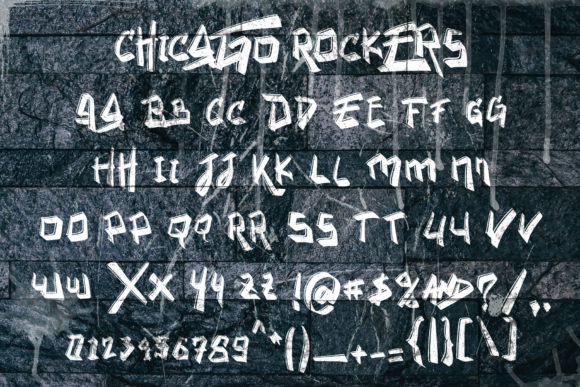 CHICAGO ROCKERS
AA BB CC DD EE FF GG
HH II JJ KK LL MM NN
OO PP QQ RR SS TT UU VV
WW XX YY ZZ !@#$%AND?/,.
0123456789^*()_+-={|}[\]